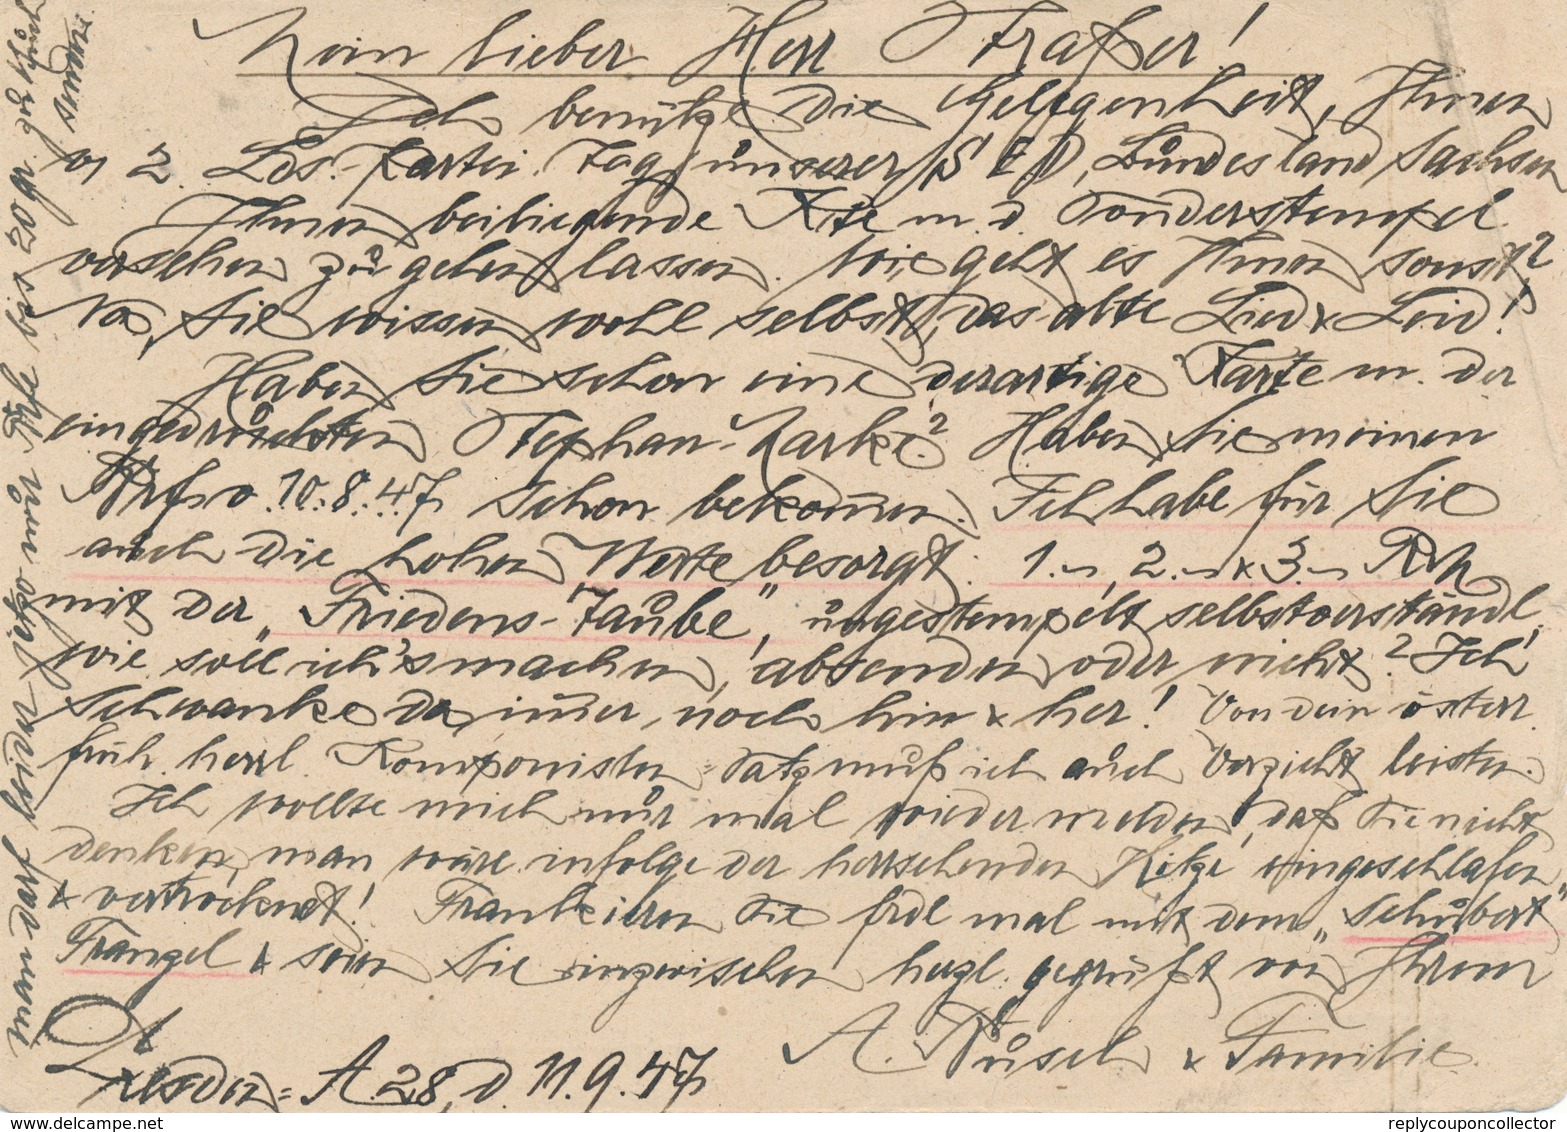 Mein lieber Herr Fraßer!
Ich benütze die Gelegenheit, Ihnen
v. 2. Lds.-Partei-Tag unserer SED, Bundesland Sachsen
Ihnen beiliegende Kte m. d. Sonderstempel
versehen zugehen lassen. Wie geht es Ihnen sonst?
Na, Sie wissen wohl selbst, das alte Lied & Leid!
Haben Sie schon eine derartige Karte m. der
eingedruckten Stephan-Marke? Haben Sie meinen
Brf. v. 10.8.47 schon bekom̄en. Ich habe für Sie
auch die hohen Werte besorgt: 1.-, 2.- & 3.- RM
mit der „Friedens-Taube", ungestempelt selbstverständl.
wie soll ich's machen, absenden oder nicht? Ich
schwanke da im̄er noch hin & her! Von dem österr.
früh. herrl. Komponisten-Satz muß ich auch Verzicht leisten.
Ich wollte mich nur mal wieder melden, daß Sie nicht
denken, man wäre infolge der herrschenden Hitze eingeschlafen
& vertrocknet! Frankieren Sie frdl mal mit dem „Schubert"
Franzel & seien Sie inzwischen herzl. gegrüßt von Ihrem
A. Püsch & Familie.
Dresden-A 28, d. 11.9.47
man darf leider jetzo nur Brfe bis 20 gr. zurück
senden.
replycouponcollector
delcampe.net